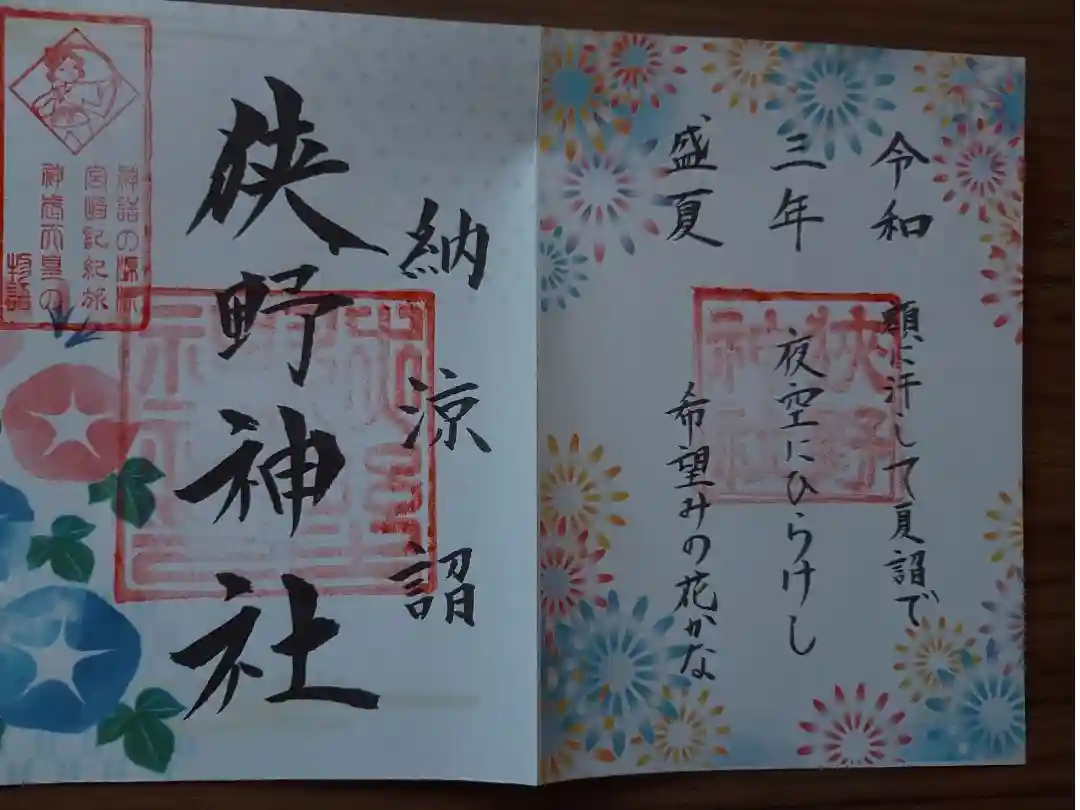 令和
三年
盛夏
額に汗して夏詣で
夜空にひらけし
希望みの花かな
狭野
神社
納涼詣
狭野神社
神話の源流
宮崎記紀旅
神武天皇の
物語